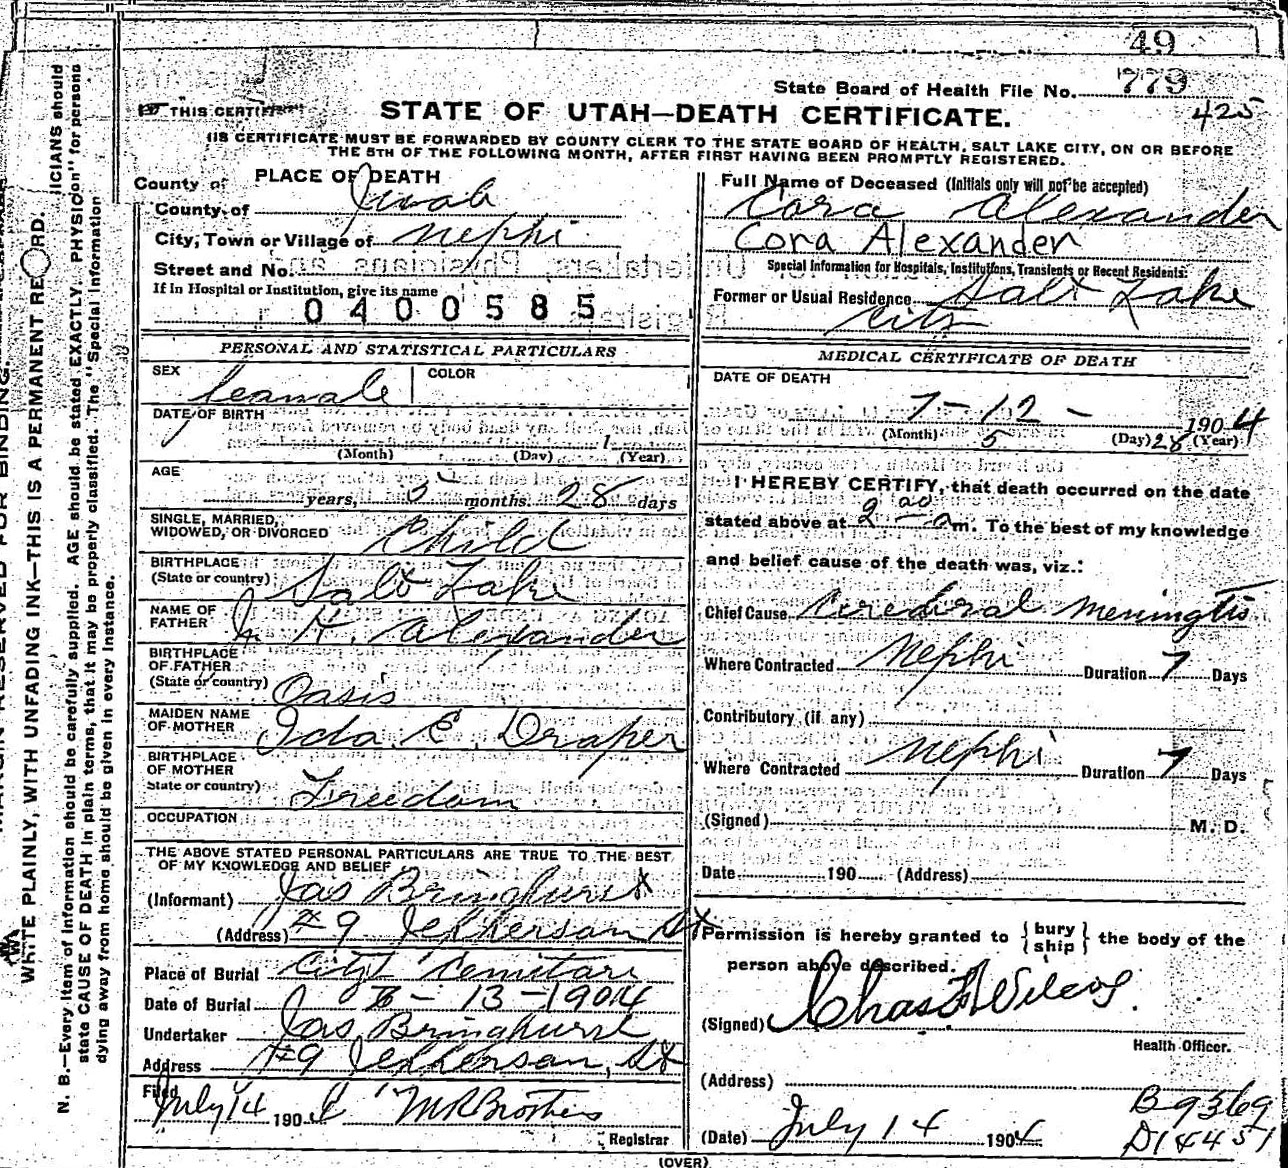 49
State Board of Health File No. 779
425
THIS CERTIF
STATE OF UTAH—DEATH CERTIFICATE.
IS CERTIFICATE MUST BE FORWARDED BY COUNTY CLERK TO THE STATE BOARD OF HEALTH, SALT LAKE CITY, ON OR BEFORE
THE 5TH OF THE FOLLOWING MONTH, AFTER FIRST HAVING BEEN PROMPTLY REGISTERED.
County of
PLACE OF DEATH
County of Juab
City, Town or Village of Nephi
Street and No.
If in Hospital or Institution, give its name
0400585
Full Name of Deceased (Initials only will not be accepted)
Cora Alexander
Cora Alexander
Special Information for Hospitals, Institutions, Transients or Recent Residents:
Former or Usual Residence Salt Lake
City
PERSONAL AND STATISTICAL PARTICULARS
SEX feamale COLOR
DATE OF BIRTH
1
(Month) (Day) (Year)
AGE
years, 5 months 28 days
SINGLE, MARRIED,
WIDOWED, OR DIVORCED Child
BIRTHPLACE
(State or country) Salt Lake
NAME OF
FATHER H. Alexander
BIRTHPLACE
OF FATHER
(State or country) Oasis
MAIDEN NAME
OF MOTHER Ida E. Draper
BIRTHPLACE
OF MOTHER
State or country) Freedom
OCCUPATION
THE ABOVE STATED PERSONAL PARTICULARS ARE TRUE TO THE BEST
OF MY KNOWLEDGE AND BELIEF
(Informant) Jas Bringhurst
(Address) #9 Jefferson St
Place of Burial City Cemitary
Date of Burial 7-13-1904
Undertaker Jas Bringhurst
Address #9 Jefferson, St
Filed
July 14 190 M R Brothers
Registrar
MEDICAL CERTIFICATE OF DEATH
DATE OF DEATH
7-12- 1904
(Month) 5 (Day) 28 (Year)
I HEREBY CERTIFY, that death occurred on the date
stated above at 2 00 a m. To the best of my knowledge
and belief cause of the death was, viz.:
Chief Cause Cerebral Meningtis
Where Contracted Nephi Duration 7 Days
Contributory (if any)
Where Contracted Nephi Duration 7 Days
(Signed) M. D.
Date 190 (Address)
Permission is hereby granted to {bury ship} the body of the
person above described.
(Signed) Chas F Wilcox
Health Officer.
(Address)
(Date) July 14 1904
B9369
D18451
(OVER)
WRITE PLAINLY, WITH UNFADING INK—THIS IS A PERMANENT RECORD.
N. B.—Every item of information should be carefully supplied. AGE should be stated EXACTLY. PHYSICIANS should
state CAUSE OF DEATH in plain terms, that it may be properly classified. The "Special Information" for persons
dying away from home should be given in every instance.